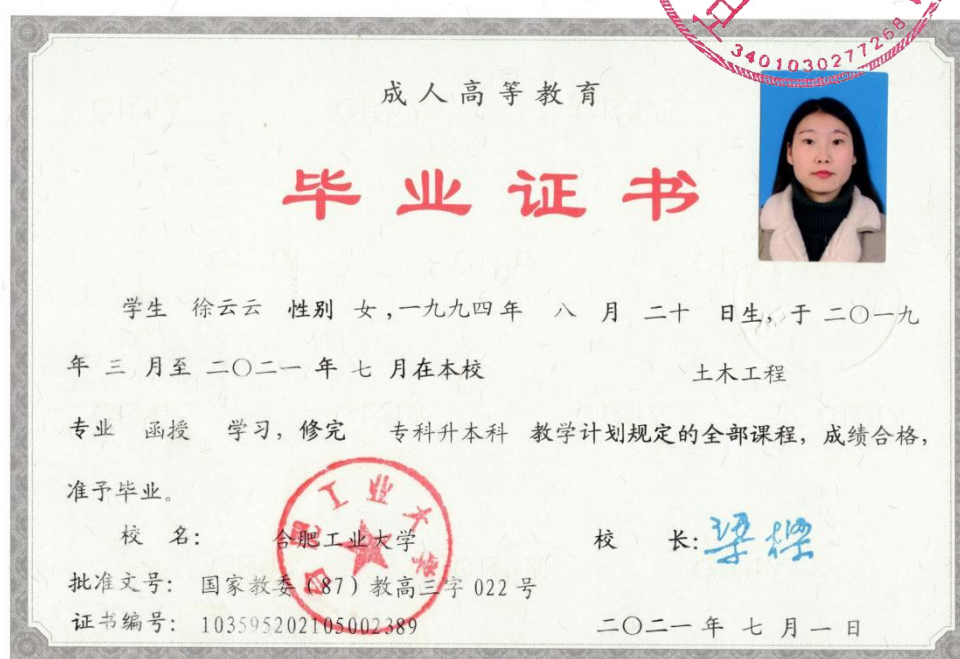 3401030277268
成人高等教育
毕业证书
学生 徐云云 性别 女,一九九四年 八 月 二十 日生,于 二〇一九
年 三 月至 二〇二一 年 七 月在本校 土木工程
专业 函授 学习,修完 专科升本科 教学计划规定的全部课程,成绩合格,
准予毕业。
校 名: 合肥工业大学 校 长: 梁樑
合肥工业大学
批准文号: 国家教委(87)教高三字 022 号
证书编号: 103595202105002389 二〇二一 年 七 月 一 日